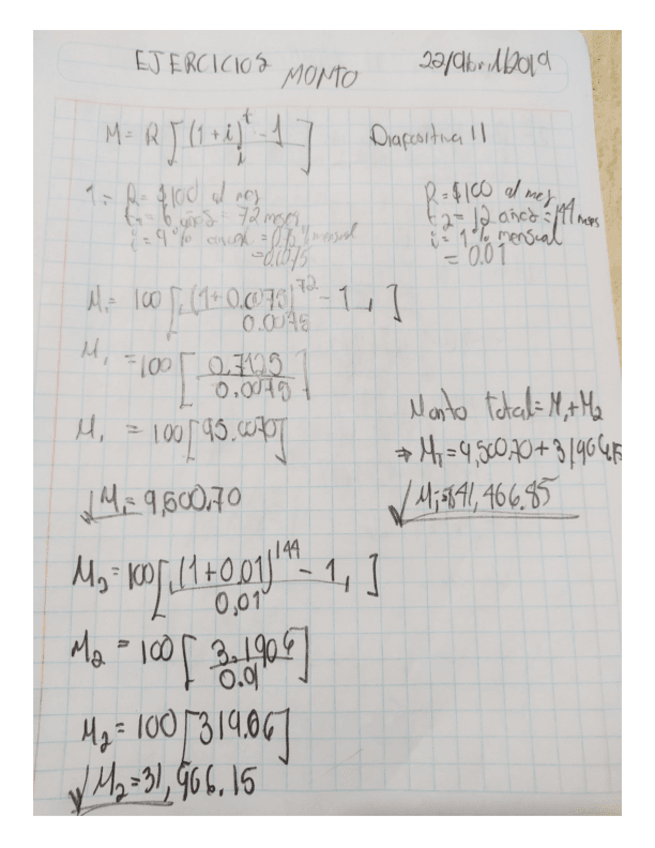 EJERCICIOS MONTO 22/Abril/2019
M = R [ (1+i)^t - 1 / i ] Diapositiva 11
1 = R = $100 al mes
t1 = 6 años = 72 meses
i = 9% anual = mensual
R = $100 al mes
t2 = 12 años = 144 meses
i = 1% mensual
= 0.01
M1 = 100 [ (1+0.0075)^72 - 1 / 0.0075 ]
M1 = 100 [ 0.7125 / 0.0075 ]
M1 = 100 [95.0070]
√ M1 = 9,500.70
Monto total = M1 + M2
⇒ MT = 9,500.70 + 31966.15
√ = $41,466.85
M2 = 100 [ (1+0.01)^144 - 1 / 0.01 ]
M2 = 100 [ 3.1906 / ]
M2 = 100 [319.06]
√ M2 = 31,966.15